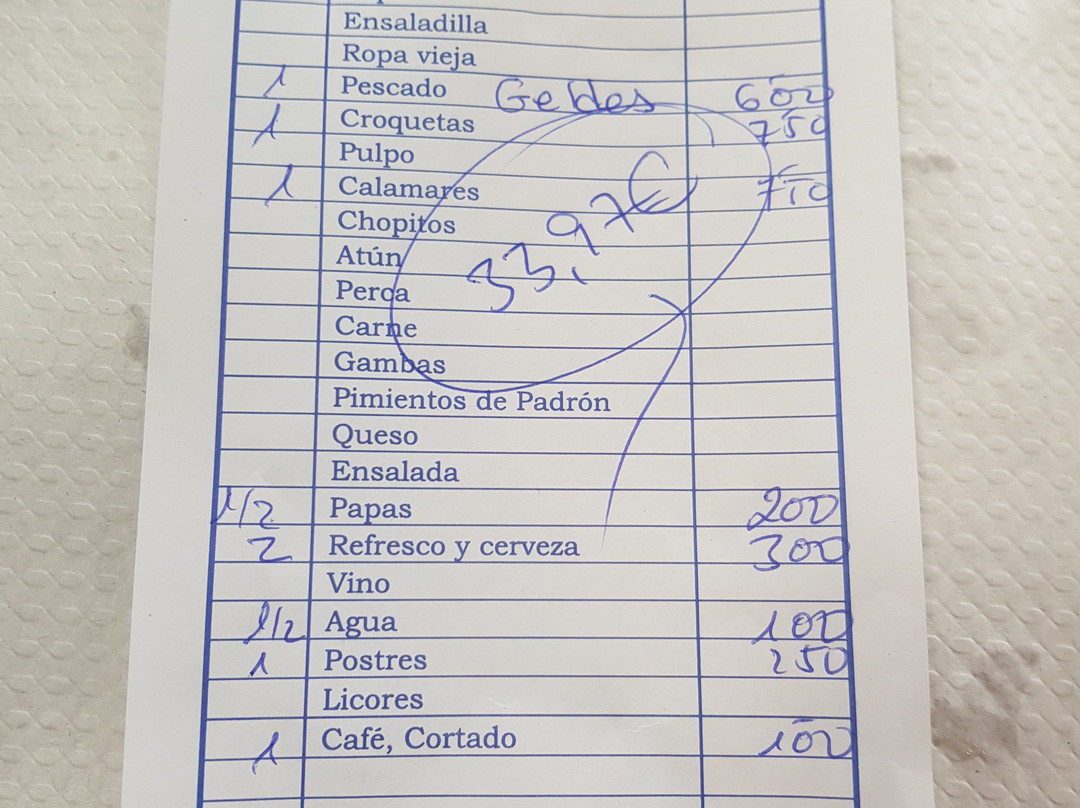 Ensaladilla
Ropa vieja
1 Pescado Geldes 600
1 Croquetas 750
Pulpo
1 Calamares 710
Chopitos
Atún
Perca
33,97€
Carne
Gambas
Pimientos de Padrón
Queso
Ensalada
1/2 Papas 200
2 Refresco y cerveza 300
Vino
1/2 Agua 100
1 Postres 250
Licores
1 Café, Cortado 100